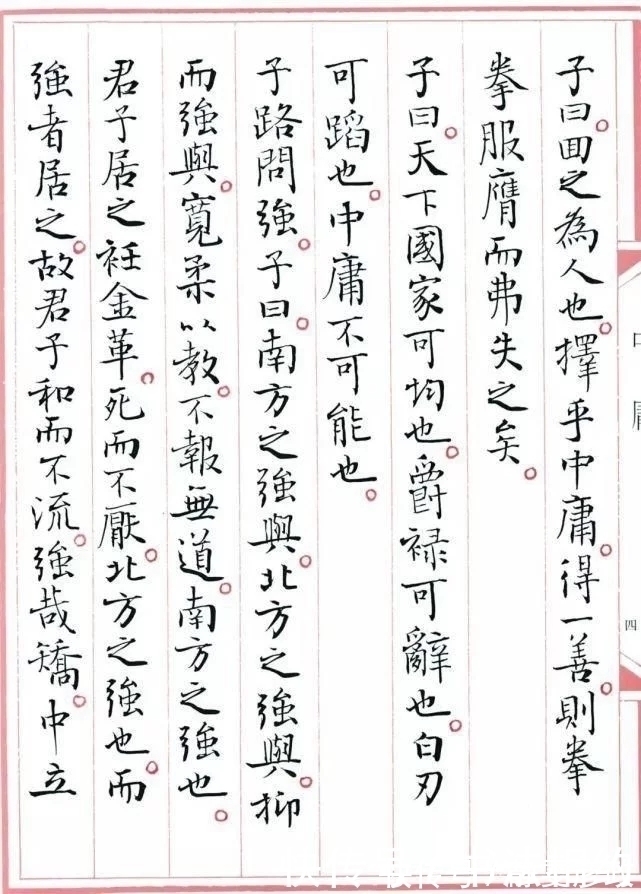 子曰。囬之為人也。擇乎中庸。得一善。則拳
拳服膺而弗失之矣。
子曰。天下國家可均也。爵禄可辭也。白刃
可蹈也。中庸不可能也。
子路問強。子曰。南方之強與。北方之強與。抑
而強與。寬柔以教。不報無道。南方之強也。
君子居之衽金革。死而不厭。北方之強也。而
強者居之。故君子和而不流。強哉矯。中立
中庸
四